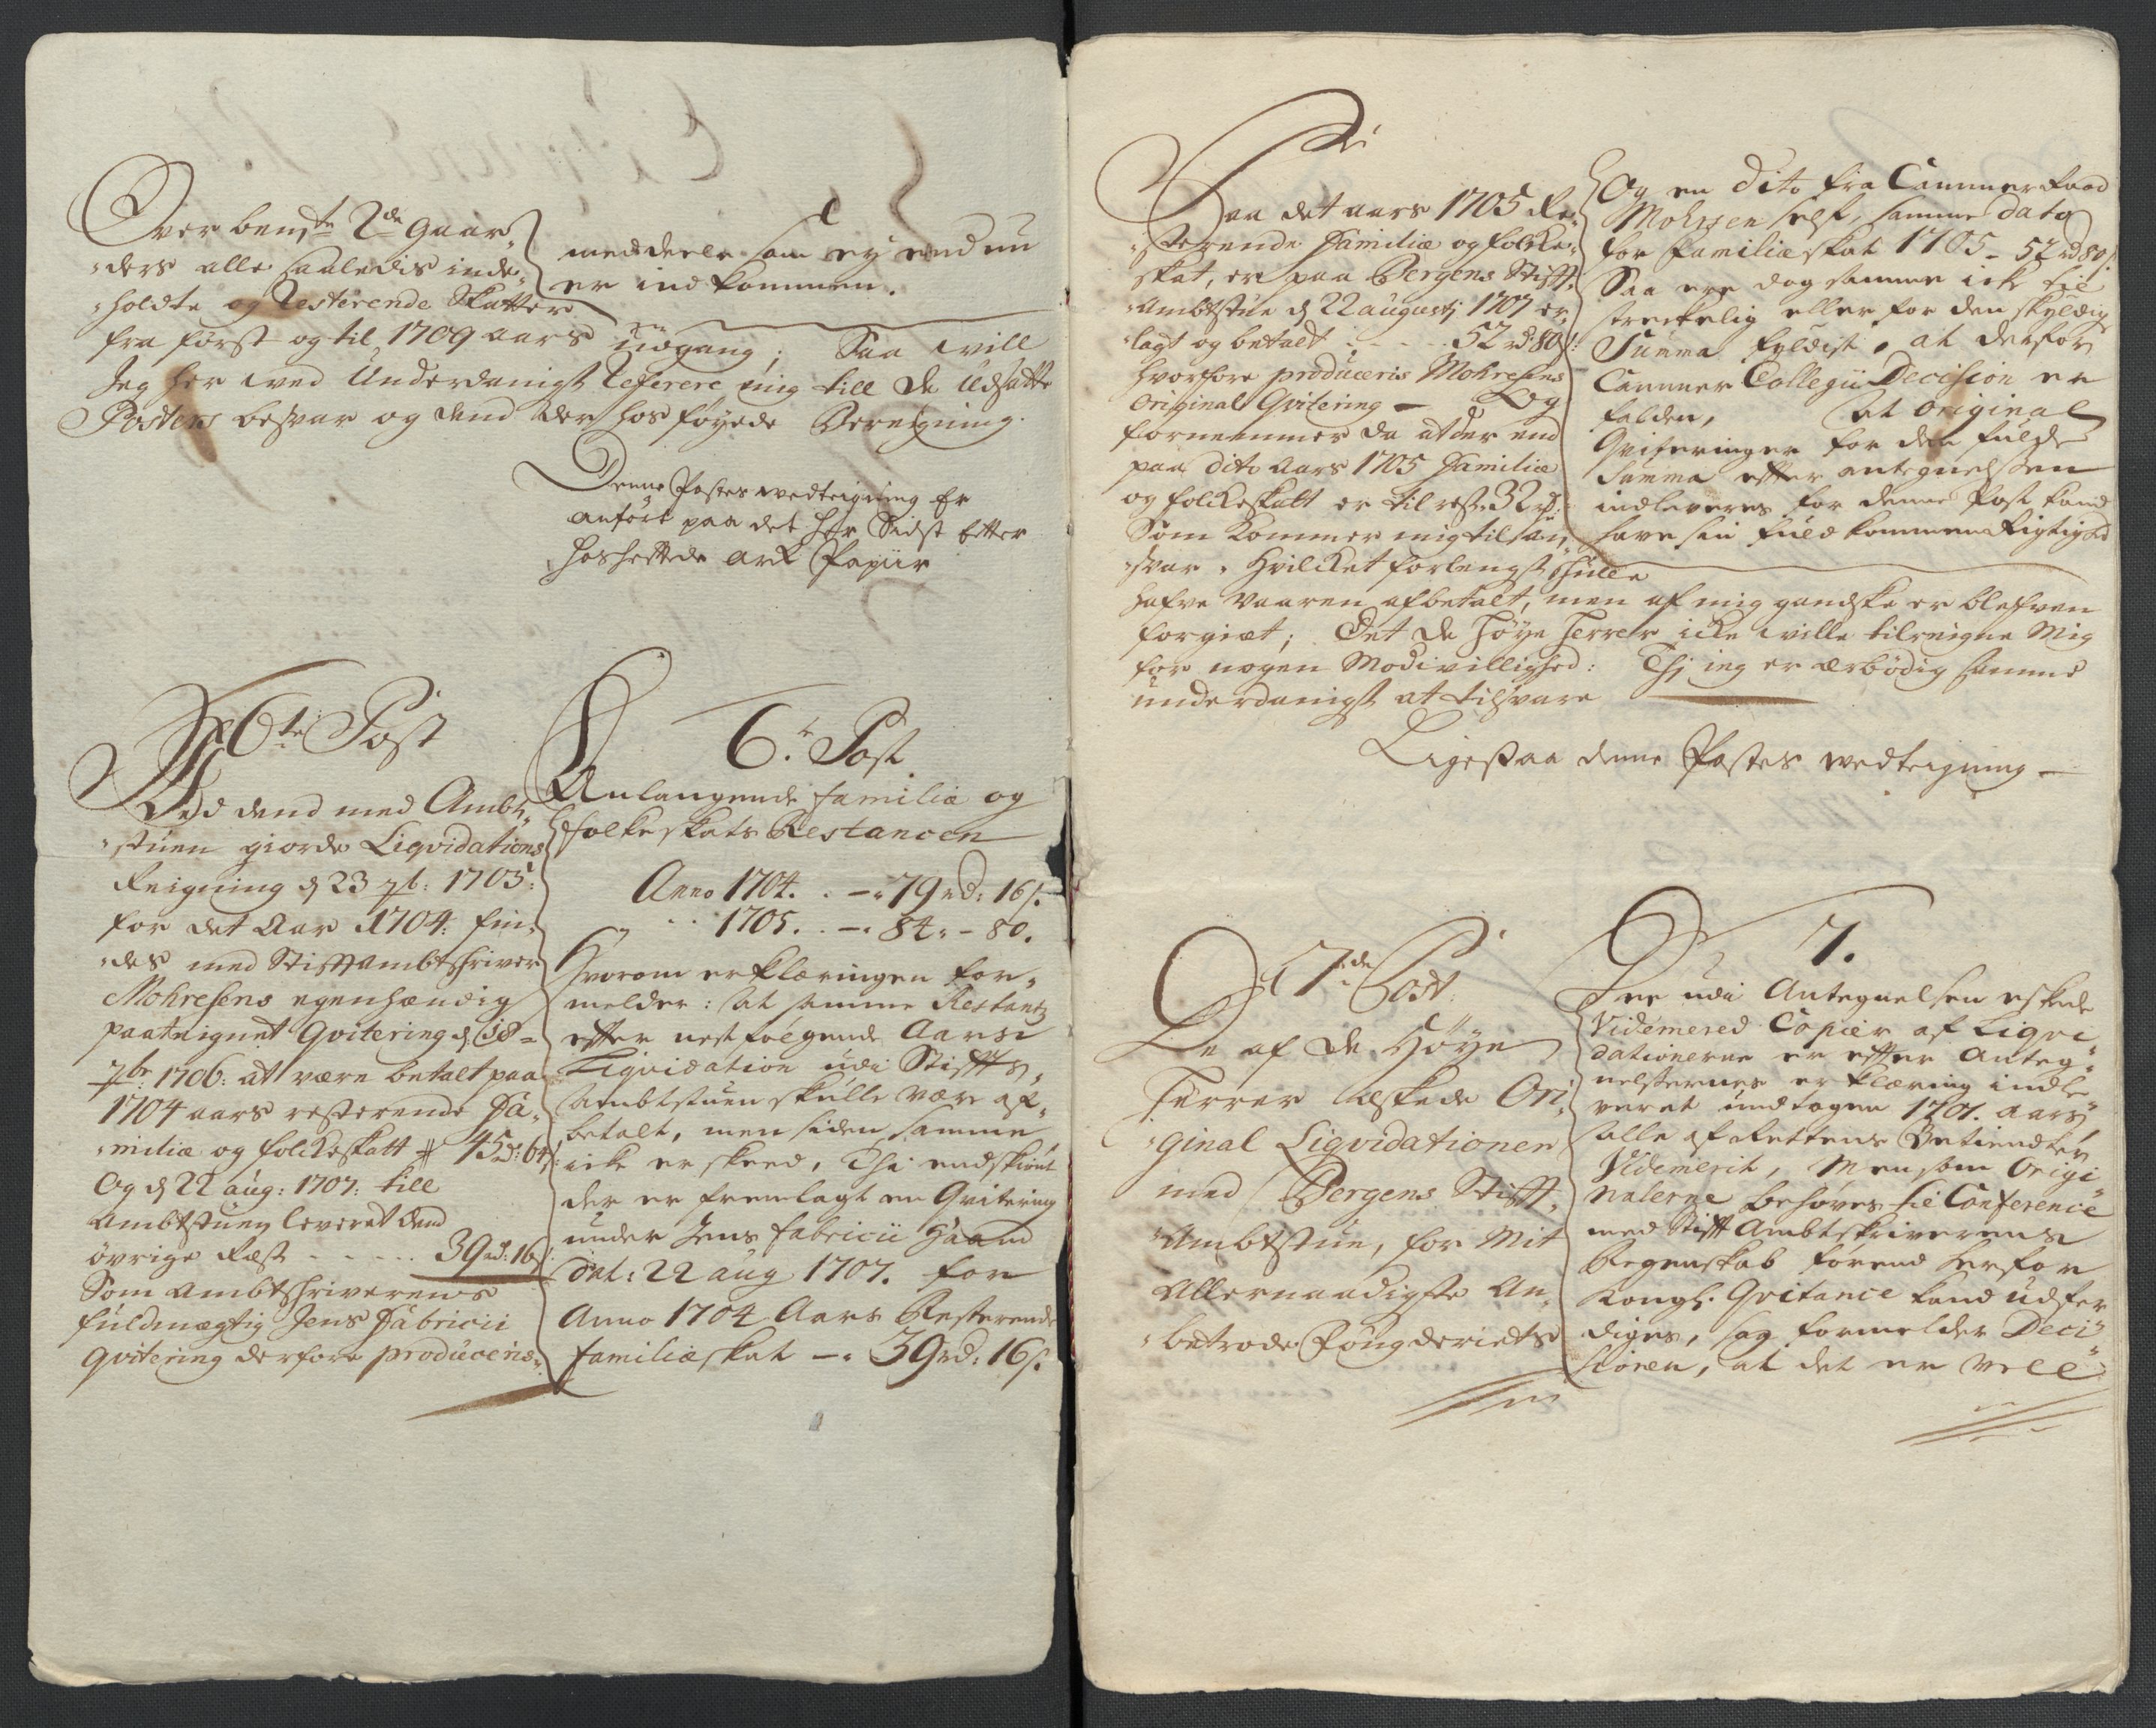 Over bem:te 2de gaar-
-ders alle saaledis inde-
-holdte og Resterende Skatter
fra først og til 1709 aars udgang; Saa will
Jeg her wed Underdanigst Referere mig till de Udsatte
Posters besvar og dend der hos føyede Beregning.
meddeele som ey end nu
er indkommen.
Denne Postes wedteigning Er
anført paa det her Sidst efter
hosheftede Ark Papiir
6te Post
Ved dend med Ambt-
-stuen giorde Liqvidations
Reigning d 23 7b: 1705:
for det Aar 1704: fin-
-des med Stiftambtskriver
Mohresens egenhændig
paateignet Qvitering d. 18
7br 1706: at være betalt paa
1704 aars resterende Fa-
-milie og folckeskatt 45 rd: 64 s:
Og d 22 aug: 1707: till
Ambtstuen leveret dend
øvrige Rest - - - - - 39 rd: 16 s
Som Ambtskriverens
fuldmægtig Jens Fabricii
qvitering derfore produceris.
6te Post
Anlangende familie og
folkeskats Restancen
Anno 1704. . - 79 rd: 16 s.
" . . 1705. . - 84 " - 80.
Hvorom erklæringen for-
melder: at samme Restantz
efter nestfølgende Aars
Liqvidation udi Stiftts
Ambtstuen skulle være af-
betalt, men siden samme
icke er skeed, Thi endskiønt
der er fremlagt en Qvitering
under Jens Fabricii haand
dat: 22 aug 1707. for
Anno 1704 Aars Resterende
familieskat - 39 rd: 16 s.
Paa det aars 1705 Re-
-sterende Familie og folcke-
skat, er paa Bergens Stifft-
Ambtstue d 22 augustj 1707 er-
-lagt og betalt - - - 52 rd 80 s:
hvorfore produceris Mohresens
Original Qvitering - Og
fornemmer da at der end
paa dito aars 1705 Familie
og folckeskatt er til rest 32 rd:
Som kommer mig til an-
-svar, hvilcket forlengst skulle
hafve vaaren afbetalt, men af mig gandske er blefven
forgiæt; Det de høye Herrer icke wille tilreigne Mig
for nogen Modivillighed: Thj ieg er ærbødig samme
underdanigst at tilsvare
Og en dito fra Cammerraad
Mohrsen self, samme dato
for familieskat 1705 - 52 rd 80 s.
Saa ere dog samme ick til
streckelig eller for den skyldig
Summa fyldist, at derfor
Cammer Collegii Decision er
falden, at original
Qviteringer for den fulde
Summa efter antegnelsen
indleveres for denne Post kand
have sin fuldkommen Rigtighed
Ligesaa denne Postes wedteigning -
7de Post
De af de Høye
Herrer æskede Ori-
-ginal Liqvidationer
med Bergens Stifft-
-Ambtstue, for Mit
Allernaadigste An-
-betrode Fougderiets
7.
De udi Antegnelsen eskede
Videmered Copier af Liqvi
dationerne er efter Anteg-
nelsernes erklæring indle
veret undtagen 1701. Aars,
alle af Rettens Betiendter
Videmerit, Men som Origi
nalerne behøves til Conference
med Stift Ambtskriverens
Regenskab førend herfor
Kongl. Qvitance kand udfer
diges, sag formelder Deci
sionen, at det er vell